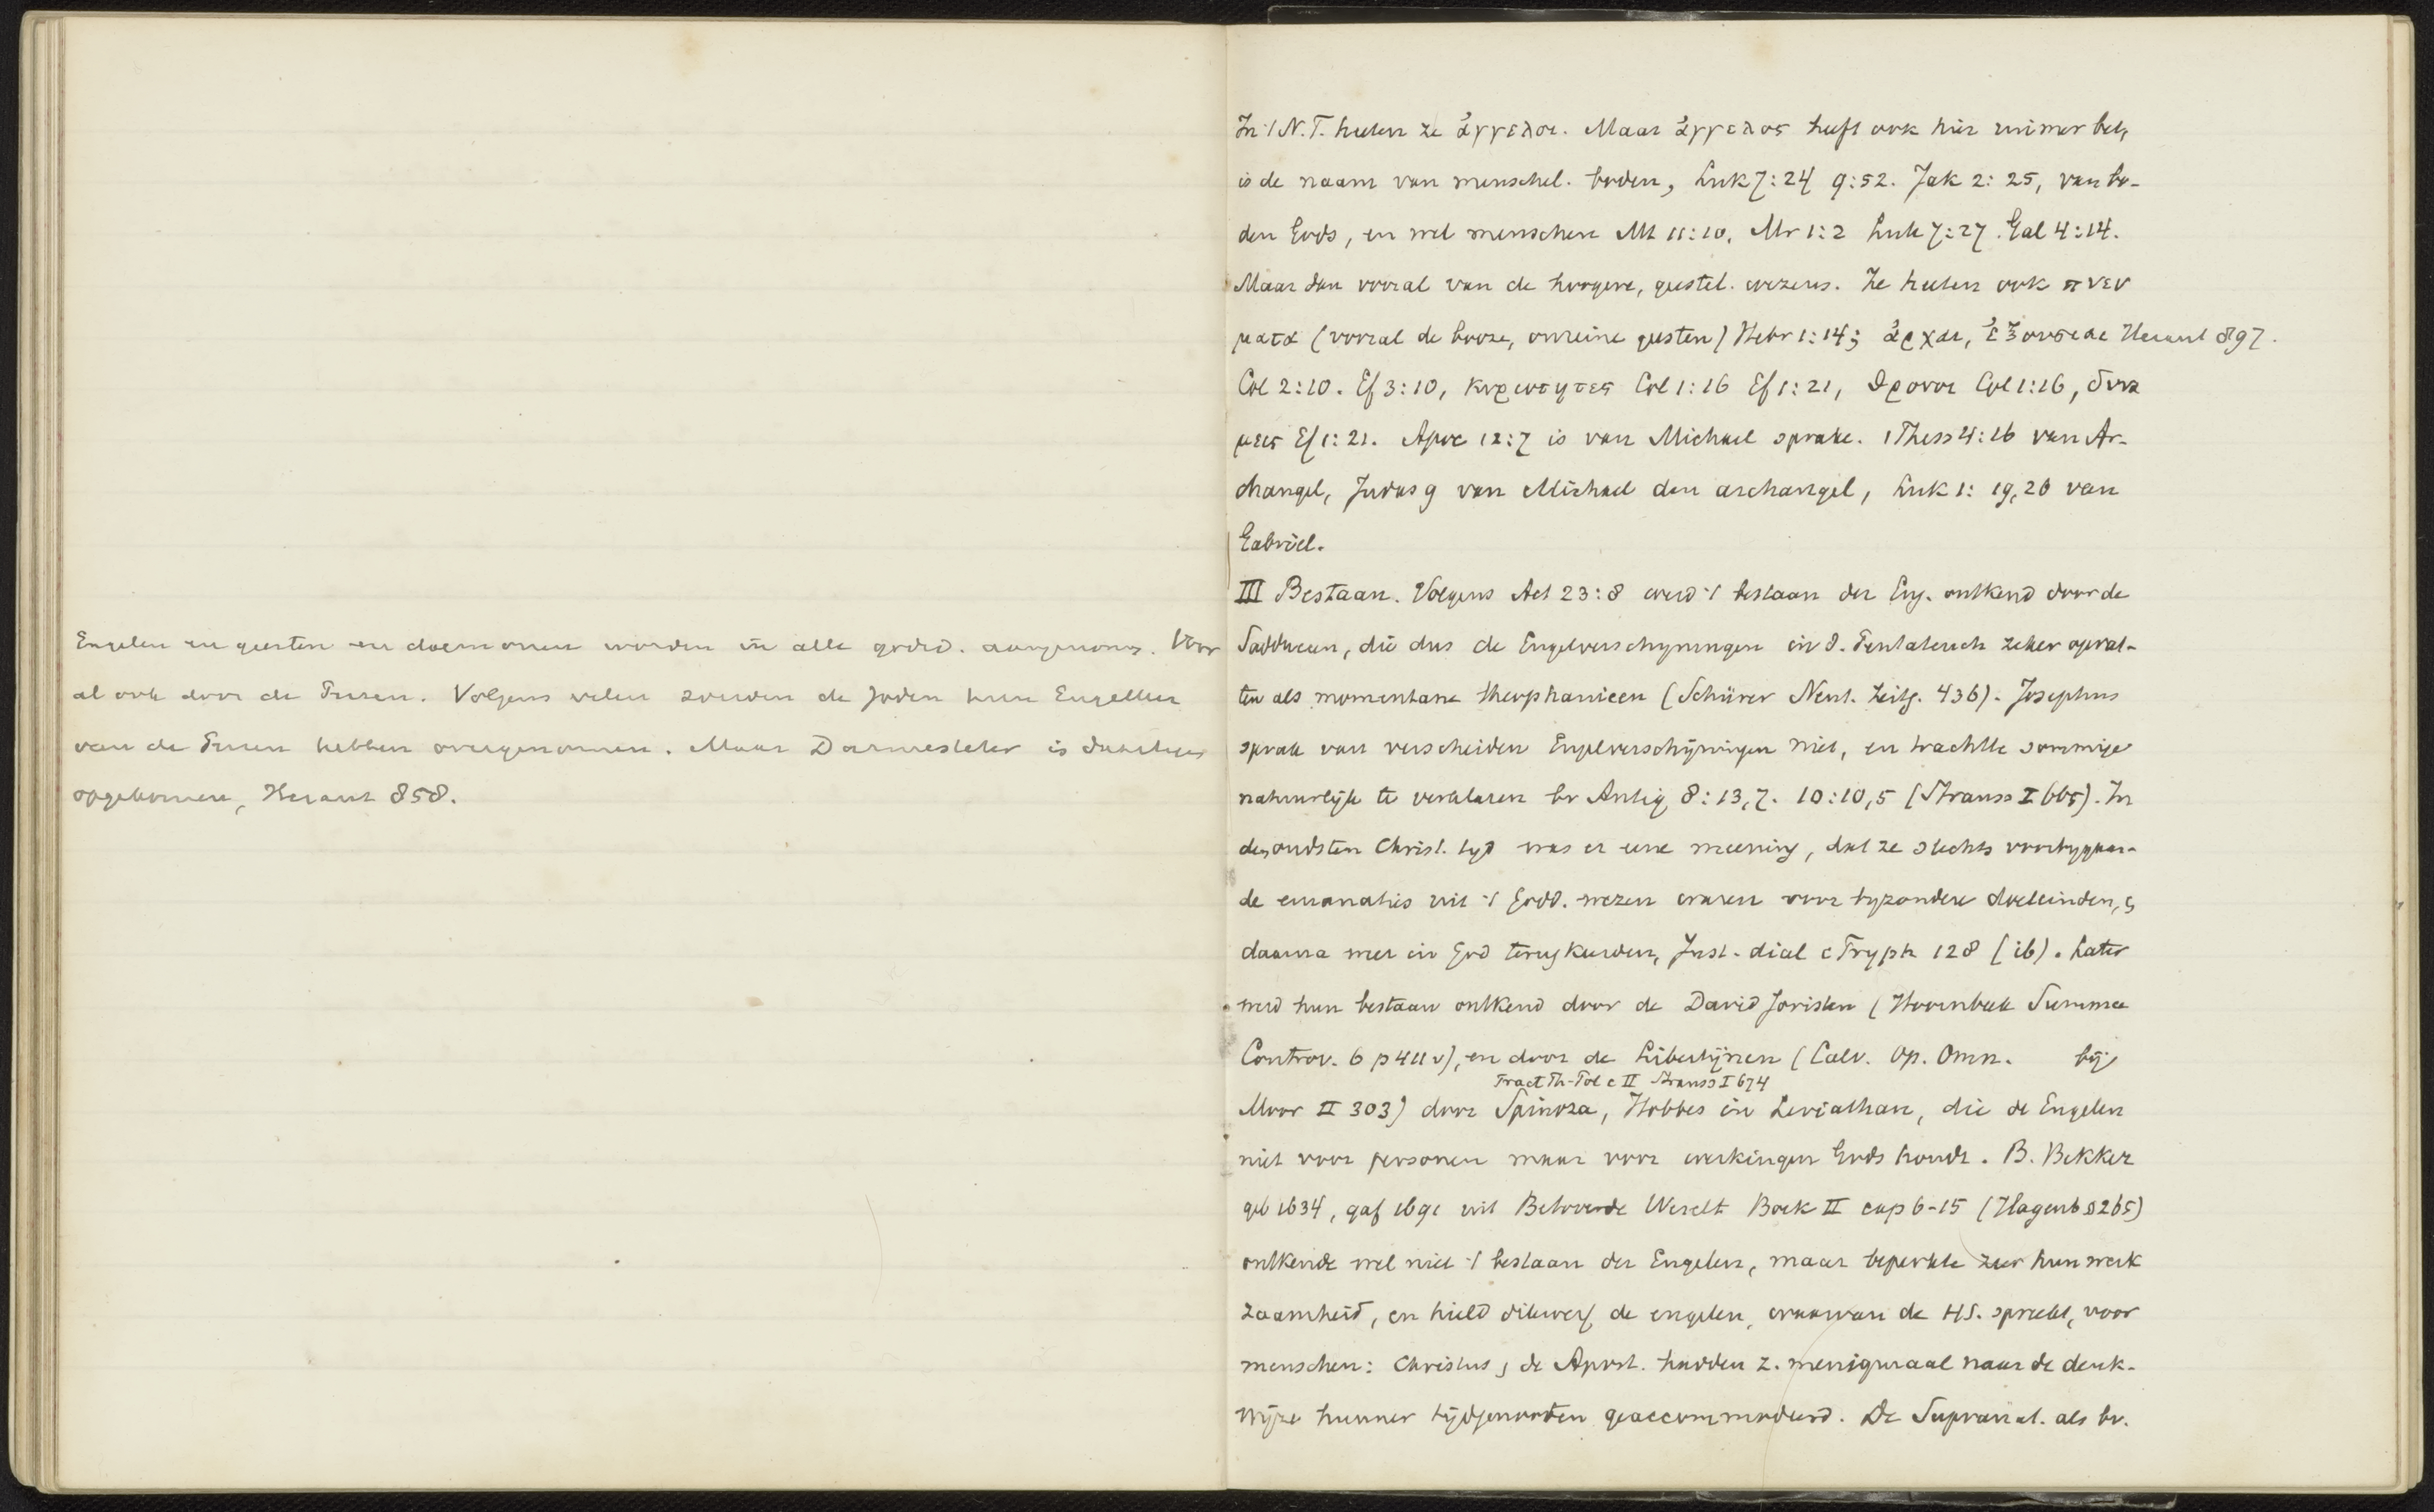 Engelen en geesten en daemonen worden in alle godsd. aangenomen. Voor
al ook door de Perzen. Volgens velen zouden de Joden hun Engelleer
van de Perzen hebben overgenomen. Maar Darmesteter is daartegen
opgekomen, Heraut 858.
In 't N.T. heeten ze ἄγγελοι. Maar ἄγγελος heeft ook hier ruimer bet,
is de naam van menschel. boden, Luk 7:24 9:52. Jak 2:25, van bo-
den Gods, en wel menschen Mt 11:10, Mr 1:2 Luk 7:27. Gal 4:14.
Maar dan vooral van de hoogere, geestel. wezens. Ze heeten ook πνευ
ματα (vooral de booze, onreine geesten) Hebr 1:14; ἀρχαι, ἐξουσιαι Heraut 897.
Col 2:10. Ef 3:10, κυριοτητες Col 1:16 Ef 1:21, θρονοι Col 1:16, δυνα
μεις Ef 1:21. Apoc 12:7 is van Michael sprake. 1 Thess 4:16 van Ar-
changel, Judas 9 van Michael den archangel, Luk 1:19,26 van
Gabriel.
III Bestaan. Volgens Act 23:8 werd 't bestaan der Eng. ontkend door de
Sadduceen, die dus de Engelverschyningen in d. Pentateuch zeker opvat-
ten als momentane theophanieen (Schürer Neut. Zeitg. 436). Josephus
sprak van verscheiden Engelverschijningen niet, en trachtte sommige
natuurlijk te verklaren bv Antiq 8:13,7. 10:10,5 (Strauss I 665). In
den oudsten Christ. tyd was er eene meening, dat ze slechts voorbygaan-
de emanaties uit 't Godd. wezen waren voor byzondere doeleinden, en
daarna weer in God terugkeerden, Just. dial c Tryph 128 (ib). Later
werd hun bestaan ontkend door de David Joristen (Hoornbeek Summa
Controv. 6 p 411 v), en door de Libertijnen (Calv. Op. Omn. bij
Tract Th-Pol c II Strauss I 674
Moor II 303) door Spinoza, Hobbes in Leviathan, die de Engelen
niet voor personen maar voor werkingen Gods houdt. B. Bekker
geb 1634, gaf 1691 uit Betoverde Werelt Boek II cap 6-15 (Hagenb § 265)
ontkende wel niet 't bestaan der Engelen, maar beperkte zeer hun werk
zaamheid, en hield dikwerf de engelen, waarvan de HS. spreekt, voor
menschen: Christus en de Apost. hadden z. menigmaal naar de denk-
wijze hunner tijdgenooten geaccommodeerd. De Supranat. als bv.